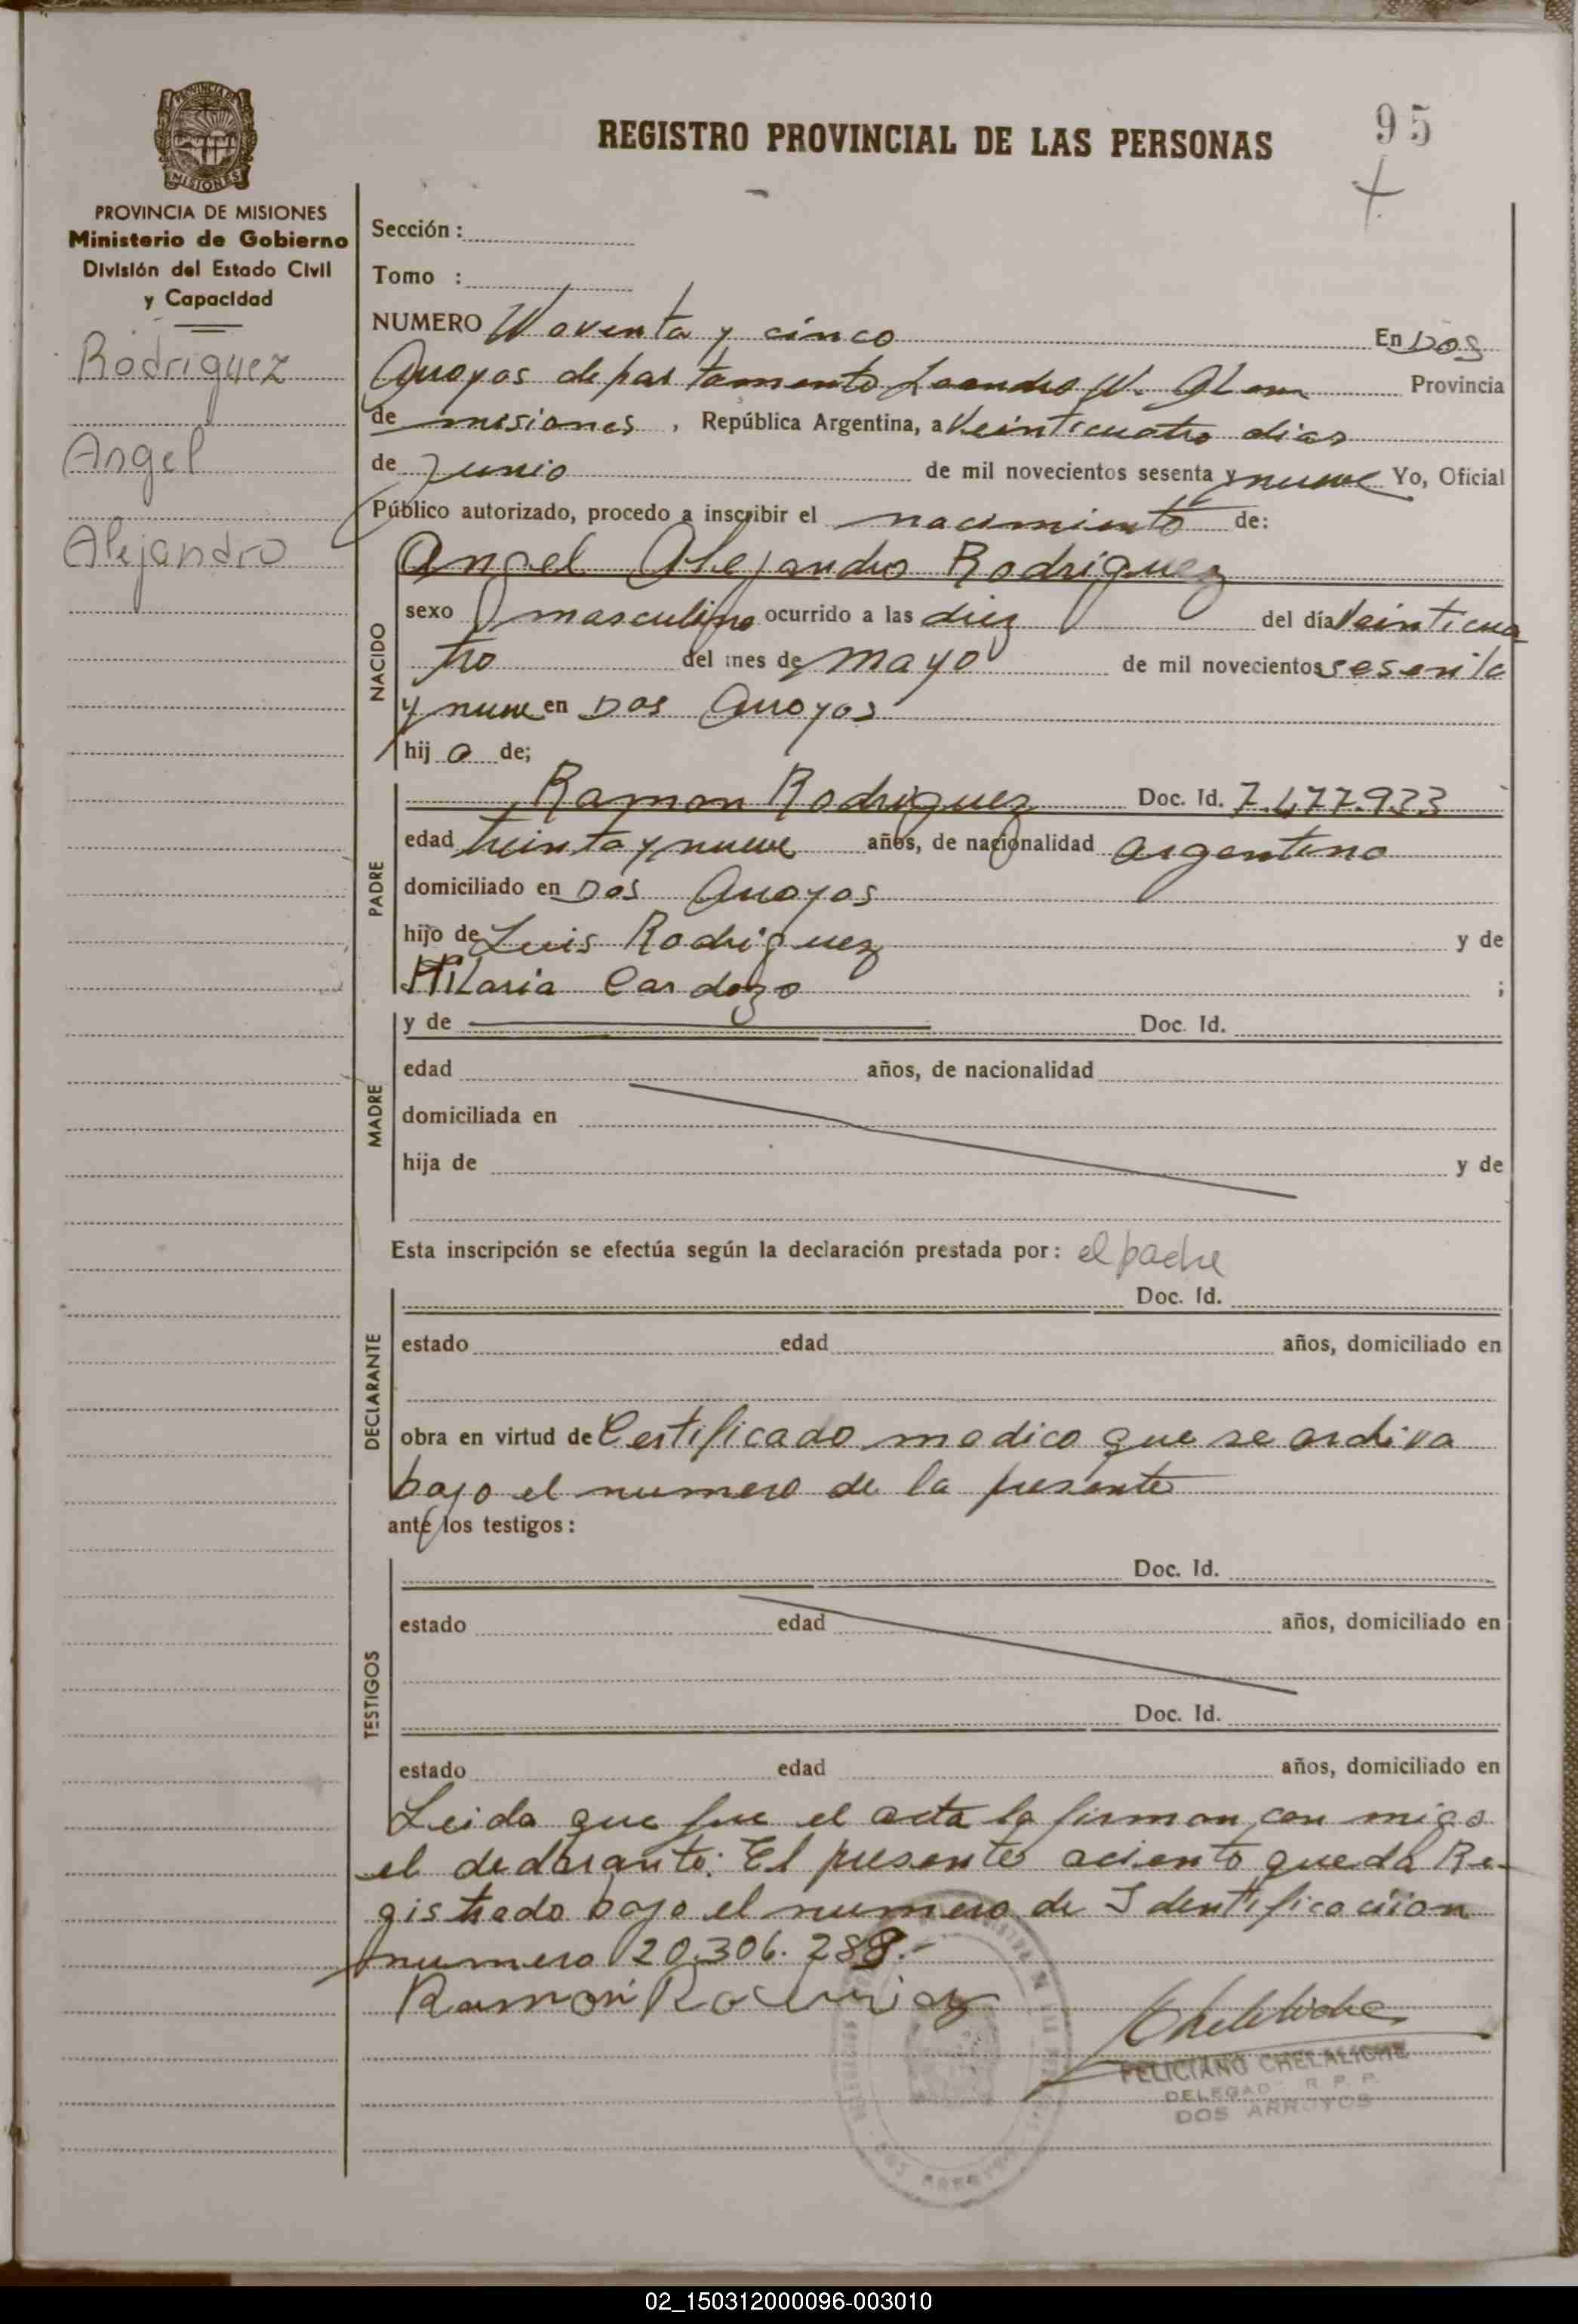 PROVINCIA DE MISIONES
MISIONES
PROVINCIA DE MISIONES
Ministerio de Gobierno
División del Estado Civil
y Capacidad
Rodriguez
Angel
Alejandro
REGISTRO PROVINCIAL DE LAS PERSONAS
95
Sección :
Tomo :
NUMERO Noventa y cinco En Dos
Arroyos departamento Leandro N. Alem Provincia
de misiones , República Argentina, a Veinticuatro dias
de Junio de mil novecientos sesenta y nueve Yo, Oficial
Público autorizado, procedo a inscribir el nacimiento de:
Angel Alejandro Rodriguez
NACIDO
sexo masculino ocurrido a las diez del día Veinticua
tro del mes de mayo de mil novecientos sesenta
y nueve en Dos Arroyos
hij o de;
PADRE
Ramon Rodriguez Doc. Id. 7.477.933
edad treinta y nueve años, de nacionalidad argentino
domiciliado en Dos Arroyos
hijo de Luis Rodriguez y de
Hilaria Cardozo ;
MADRE
y de Doc. Id.
edad años, de nacionalidad
domiciliada en
hija de y de
Esta inscripción se efectúa según la declaración prestada por: el padre
DECLARANTE
Doc. Id.
estado edad años, domiciliado en
obra en virtud de Certificado medico que se archiva
bajo el numero de la presente
ante los testigos:
TESTIGOS
Doc. Id.
estado edad años, domiciliado en
Doc. Id.
estado edad años, domiciliado en
Leida que fue el acta la firman con migo
el declarante: El presente aciento queda Re-
gistrado bajo el numero de Identificaciion
numero 20.306.288.-
Ramon Rodriguez
Chelaliche
FELICIANO CHELALICHE
DELEGAD R. P. P.
DOS ARROYOS
02_150312000096-003010